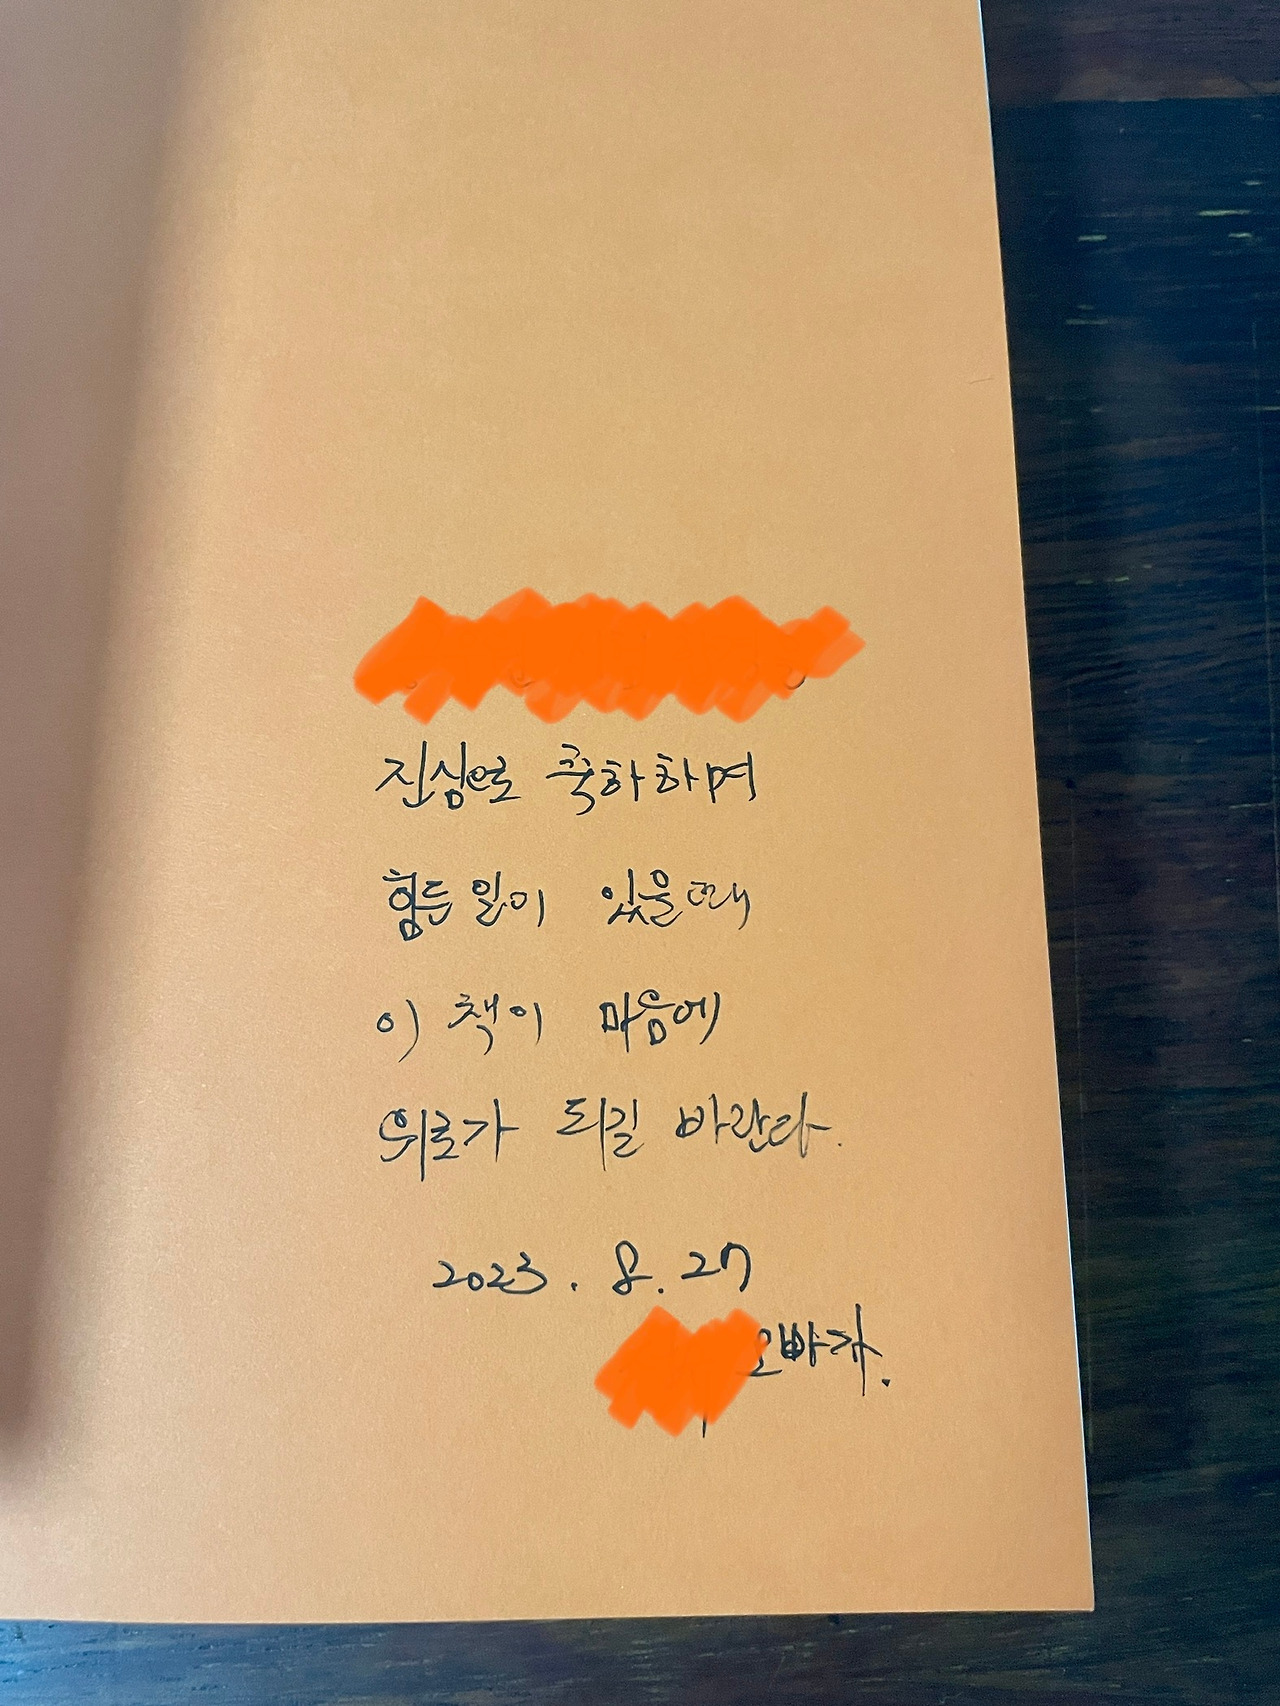 진심으로 축하하며
힘든 일이 있을때
이 책이 마음에
위로가 되길 바란다.
2023. 8. 27
오빠가.